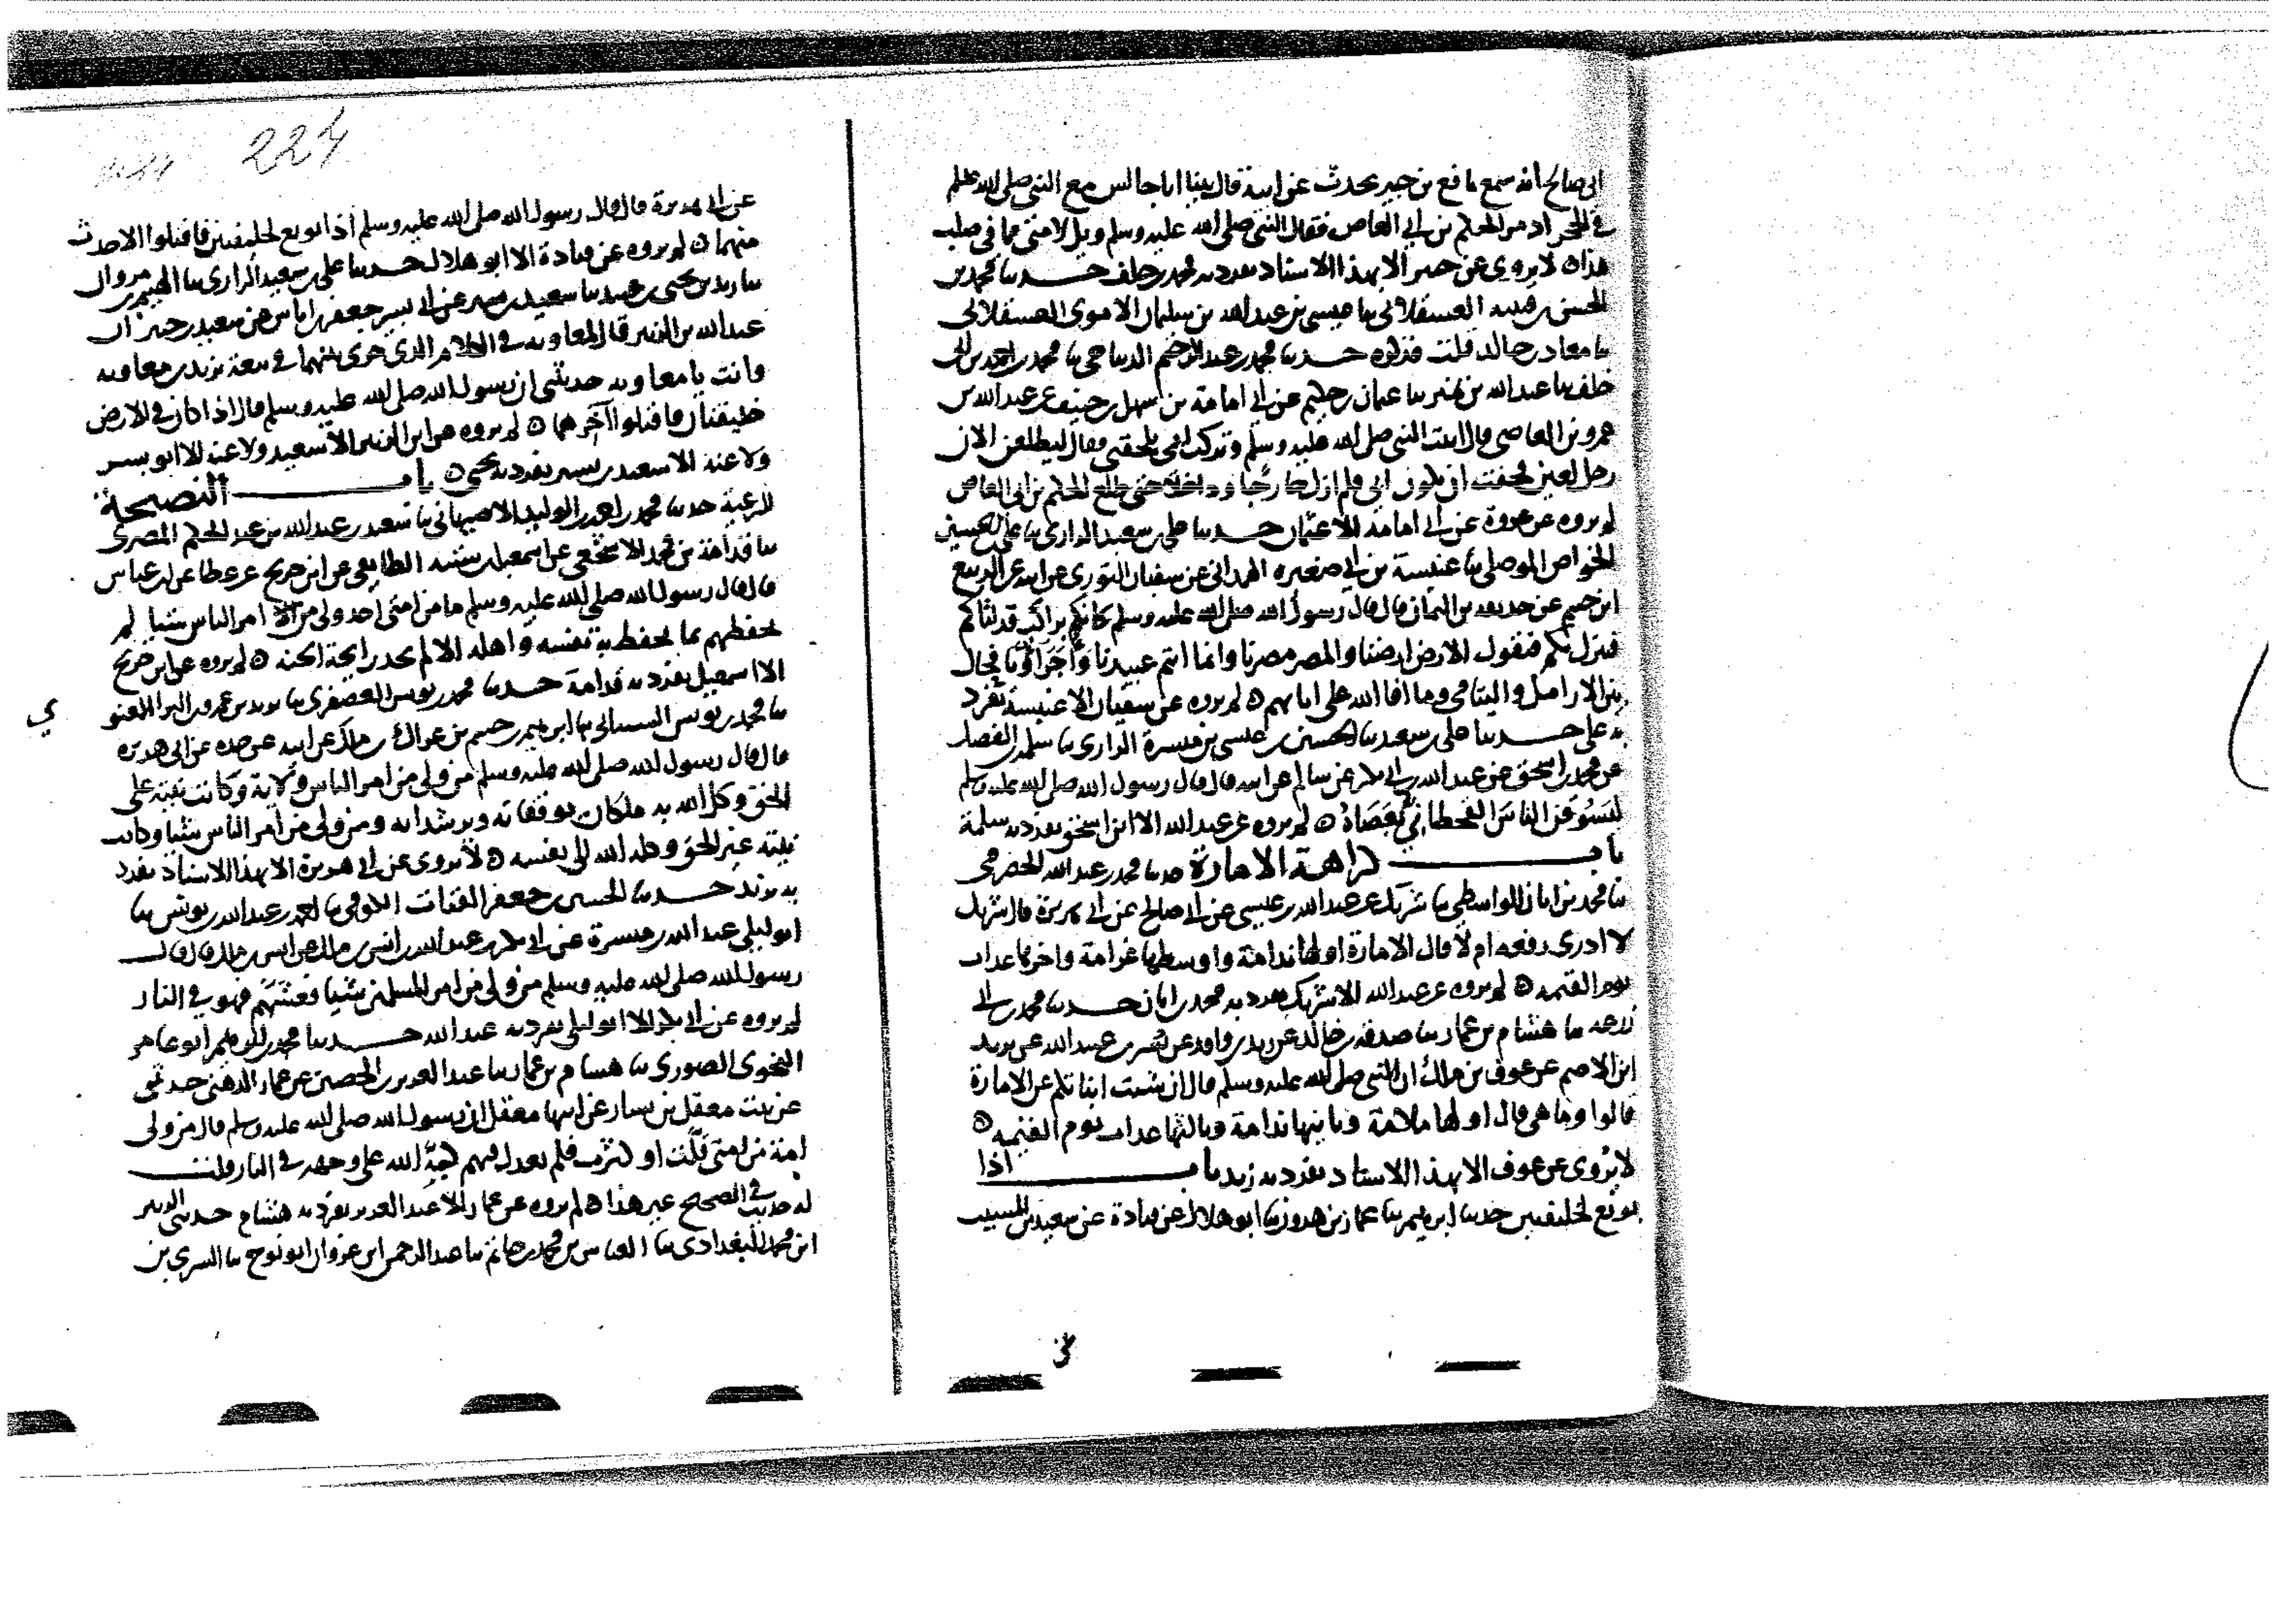 ابى صالح انه سمع نافع بن جبير يحدث عن ابيه قال بينا انا جالس مع النبى صلى الله علىه وسلم
فى الحجر اذ مر الحكم بن ابى العاص فقال النبى صلى الله عليه وسلم ويل لامتى مما فى صلب
هذا ه لا يروى عن جبير الا بهذا الاسناد تفرد به محمد بن خلف حدثنا محمد بن
الحسن بن قتيبه العسقلانى ثنا عيسى بن عبد الله بن سليمان الاموى العسقلانى
ثنا معاذ بن خالد قلت فذكره حدثنا محمد بن عبد الرحيم الديباجى ثنا محمد بن احمد بن ابى
خلف ثنا عبد الله بن نمير ثنا عثمان بن حكيم عن ابى امامة بن سهل بن حنيف عن عبد الله بن
عمرو بن العاصى قال اتيت النبى صلى الله عليه وسلم وتركت ابى يلحقنى فقال ليطلعن الان
رجل لعين فخفت ان يكون ابى فلم ازل خارجا وداخلا حتى طلع الحكم بن ابى العاص
لم يروه عن عروة عن ابى امامه الا عثمان حدثنا على بن سعيد الرازى ثنا على بن الحسين
الخواص الموصلى ثنا عنبسة بن ابى صغيره الهمدانى عن سفيان الثورى عن ابيه عن الربيع
ابن خيثم عن حذيفه بن اليمان قال قال رسول الله صلى الله عليه وسلم كانكم براكب قد اتاكم
فنزل بكم فيقول الارض ارضنا والمصر مصرنا وانما انتم عبيدنا وأجراؤنا فحال
بين الارامل واليتامى وما افا الله على ابايهم ه لم يروه عن سفيان الا عنبسة تفرد
به على حدثنا على بن سعيد ثنا الحسين بن عيسى بن ميسرة الرازى ثنا سلمه بن الفضل
عن محمد بن اسحق عن عبد الله بن ابى بكر عن سالم عن ابيه قال قال رسول الله صلى الله عليه وسلم
ليسوقن الناس القحطانى بعصاه ه لم يروه عن عبد الله الا ابن اسحق تفرد به سلمة
باب كراهة الامارة حدثنا محمد بن عبد الله الحضرمى
ثنا محمد بن ابان الواسطى ثنا شريك عن عبد الله بن عيسى عن ابى صالح عن ابى هريرة قال شريك
لا ادرى رفعه ام لا قال الامارة اولها ندامة واوسطها غرامة واخرها عذاب
يوم القيمه ه لم يروه عن عبد الله الا شريك تفرد به محمد بن ابان حدثنا محمد بن ابى
زرعه ثنا هشام بن عمار ثنا صدقه بن خالد عن زيد بن واقد عن بسر بن عبيد الله عن يزيد
ابن الاصم عن عوف بن مالك ان النبى صلى الله عليه وسلم قال ان شيت انباتكم عن الامارة
قالوا وما هى قال اولها ملامة وثانيها ندامة وثالثها عذاب يوم القيمه ه
لا يروى عن عوف الا بهذا الاسناد تفرد به زيد باب اذا
بويع لخليفتين حدثنا ابرهيم ثنا عمار بن هرون ثنا ابو هلال عن قتادة عن سعيد بن المسيب
224
عن ابى هريرة قال قال رسول الله صلى الله عليه وسلم اذا بويع لخليفتين فاقتلوا الاحدث
منهما ه لم يروه عن قتادة الا ابو هلال حدثنا على بن سعيد الرازى ثنا الهيثم بن مروان
ثنا زيد بن يحيى بن عبيد ثنا سعيد بن بشير عن ابى بشر جعفر بن اياس عن سعيد بن جبير ان
عبد الله بن الزبير قال لمعاويه فى الكلام الذى جرى بينهما فى بيعة يزيد بن معاويه
وانت يا معاويه حدثتنى ان رسول الله صلى الله عليه وسلم قال اذا كان فى الارض
خليفتان فاقتلوا آخرهما ه لم يروه عن ابن الزبير الا سعيد ولا عنه الا ابو بشر
ولا عنه الا سعيد بن بشير تفرد به يحيى ه باب النصيحة
للرعية حدثنا محمد بن احمد بن الوليد الاصبهانى ثنا سعد بن عبد الله بن عبد الحكم المصرى
ثنا قدامة بن محمد الاشجعى عن اسمعيل بن شيبه الطايفى عن ابن جريج عن عطا عن ابن عباس
قال قال رسول الله صلى الله عليه وسلم ما من امتى احد ولى من امر الناس شيئا لم
يحفظهم بما يحفظ به نفسه واهله الا لم يجد رايحة الجنه ه لم يروه عن ابن جريج
الا اسمعيل تفرد به قدامة حدثنا محمد بن يونس العصفرى ثنا يزيد بن عمرو بن البرا الغنو
ي
ثنا محمد بن يونس ثنا ابرهيم بن خيثم بن عراك بن مالك عن ابيه عن جده عن ابى هريره
قال قال رسول الله صلى الله عليه وسلم من ولى من امر الناس ولاية وكانت نيته على
الحق وكل الله به ملكان يوفقانه ويرشدانه ومن ولى من امر الناس شيئا وكانت
نيته غير الحق وكله الله الى نفسه ه لا يروى عن ابى هريرة الا بهذا الاسناد تفرد
به يزيد حدثنا الحسين بن جعفر القتات الكوفى ثنا احمد بن عبد الله بن يونس ثنا
ابو ليلى عبد الله بن ميسرة عن ابى بكر بن عبيد الله بن انس بن مالك عن انس بن مالك قال قال
رسول الله صلى الله عليه وسلم من ولى من امر المسلمين شيئا فغشهم فهو فى النار
لم يروه عن ابى بكر الا ابو ليلى تفرد به عبد الله حدثنا محمد بن ابرهيم ابو عامر
النحوى الصورى ثنا هشام بن عمار ثنا عبد العزيز بن الحصين عن عمار الدهنى حدثنى
عن بنت معقل بن يسار عن ابيها معقل ان رسول الله صلى الله عليه وسلم قال من ولى
امة من امتى قلت او كثرت فلم يعدل فيهم كبه الله على وجهه فى النار قلت
له حديث فى الصحيح غير هذا ه لم يروه عن عمار الا عبد العزيز تفرد به هشام حدثنى الزبير
ابن محمد البغدادى ثنا العباس بن محمد بن حاتم ثنا عبد الرحمن ابن غزوان ابو نوح ثنا السرى بن